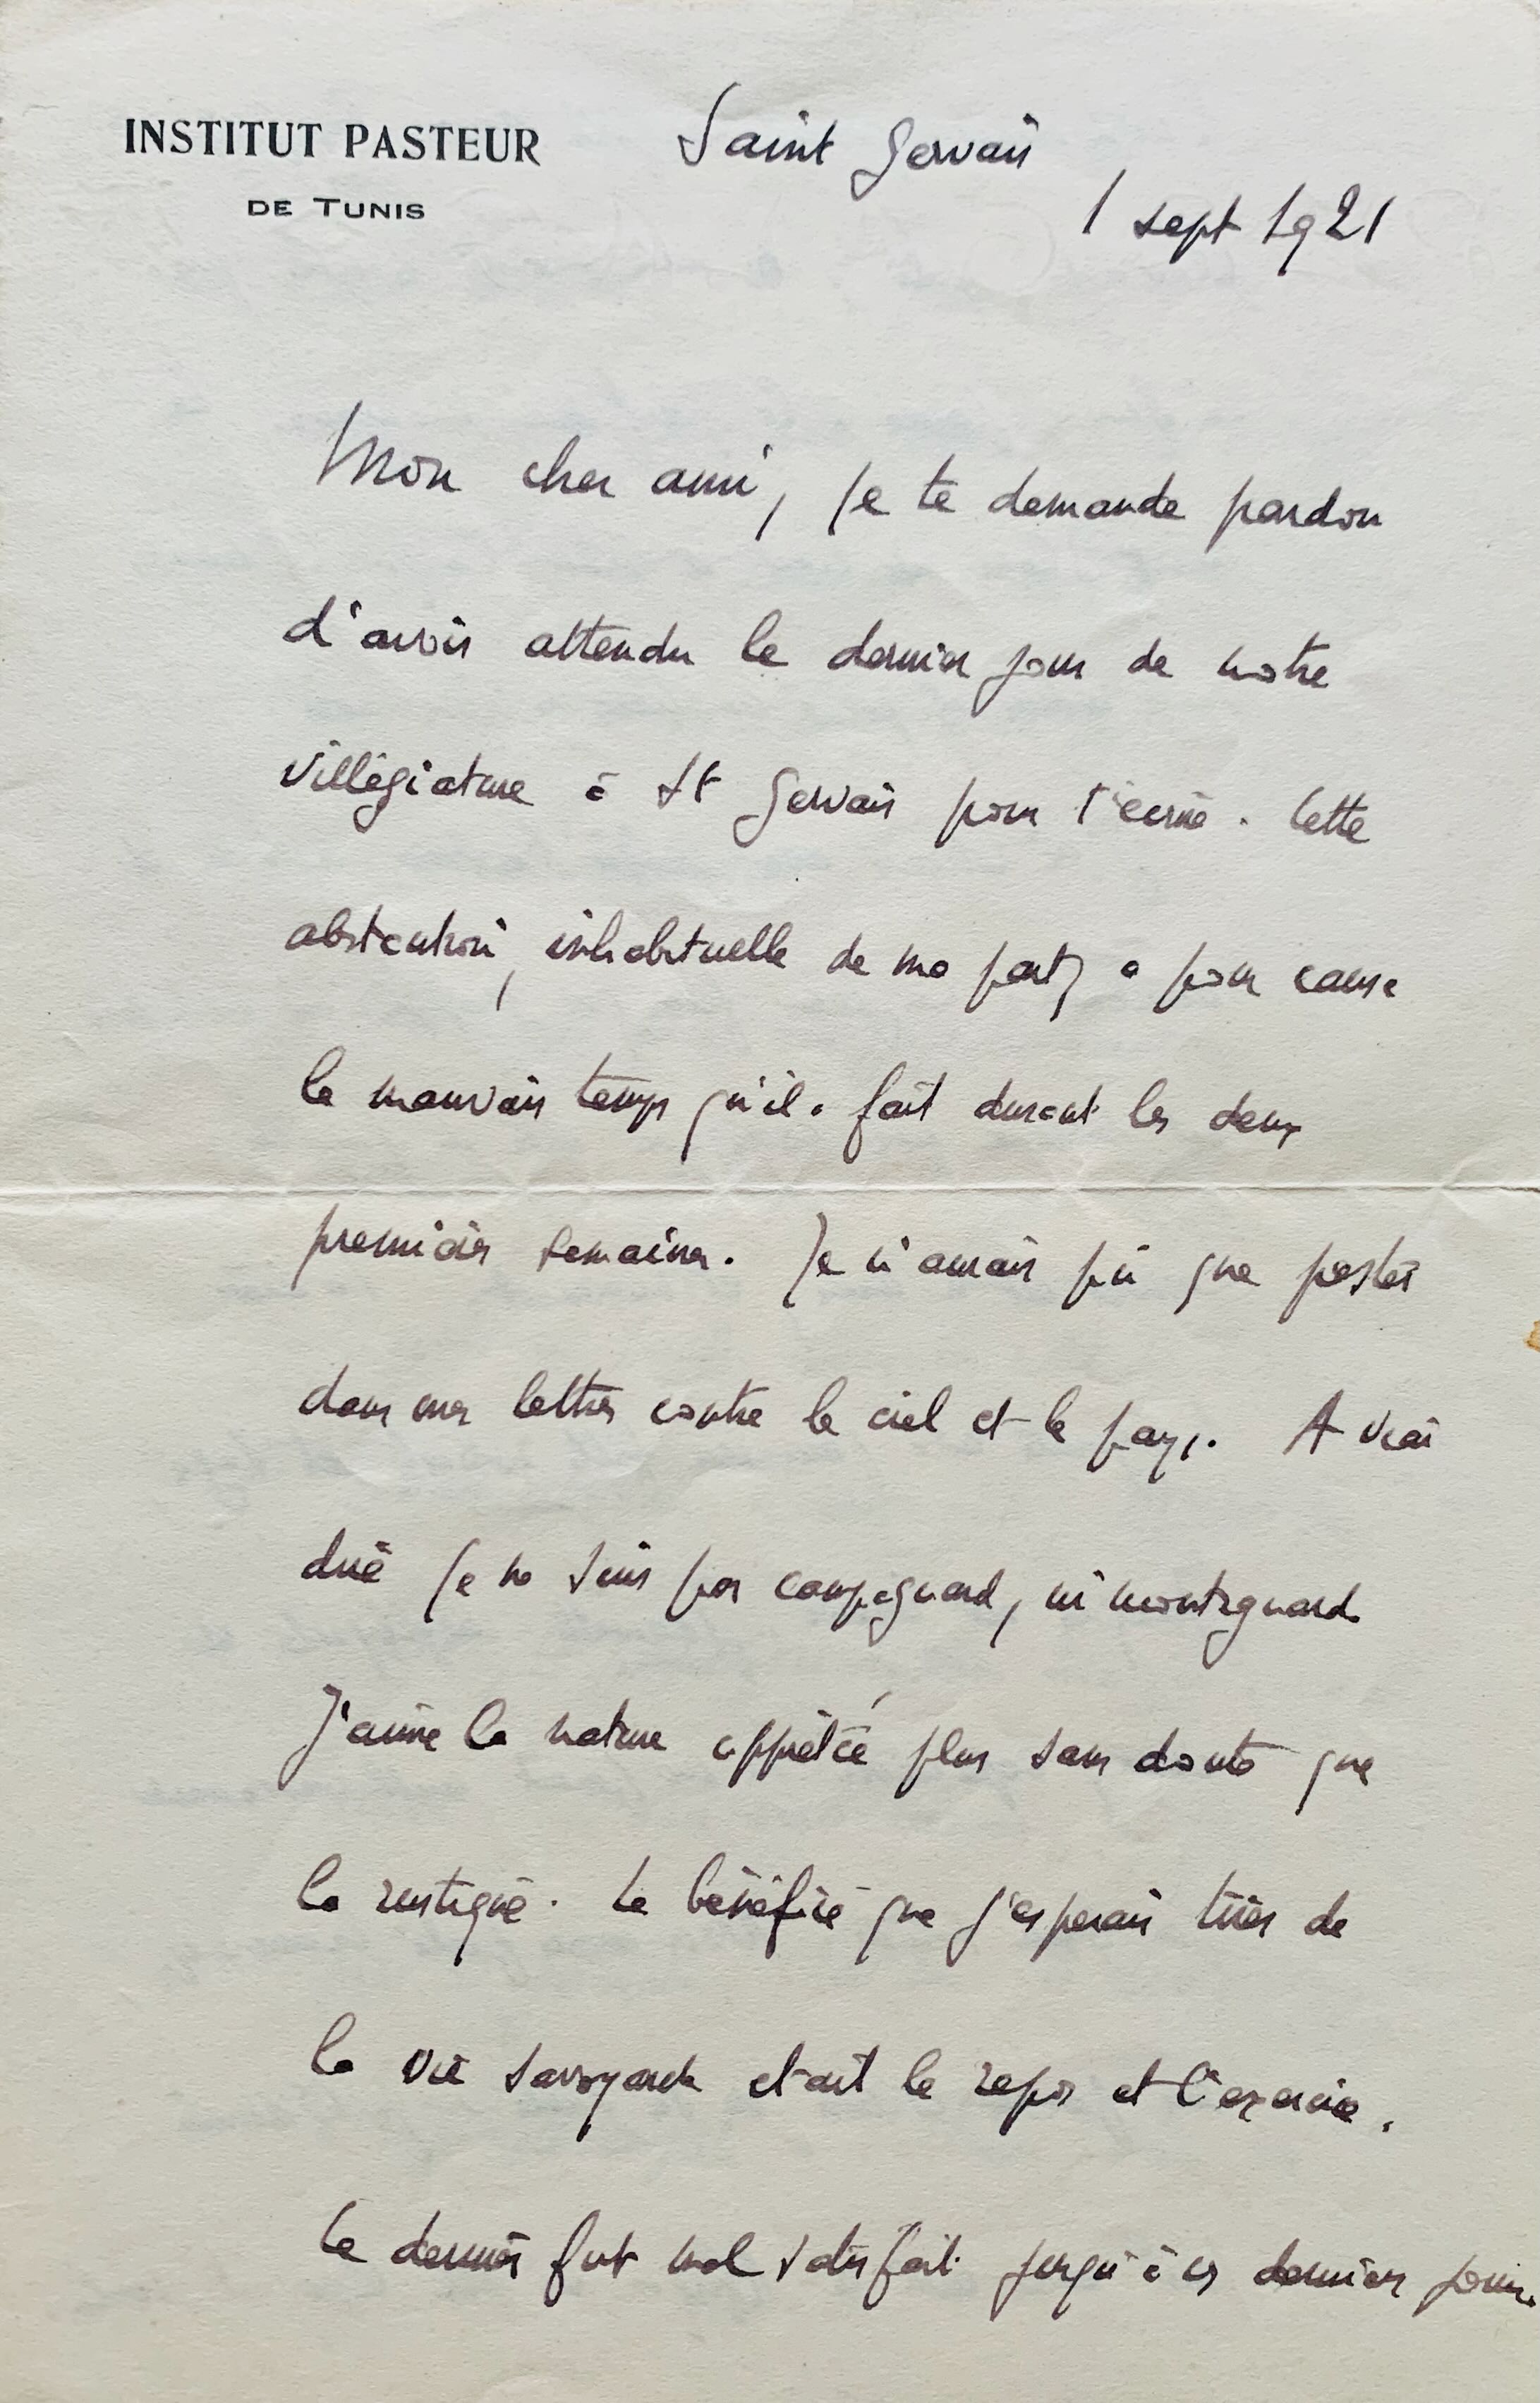 INSTITUT PASTEUR
DE TUNIS
Saint Gervais
1 sept 1921
Mon cher ami, je te demande pardon
d'avoir attendu le dernier jour de notre
villégiature à St Gervais pour t'écrire. Cette
abstention, inhabituelle de ma part, a pour cause
le mauvais temps qu'il a fait durant les deux
premières semaines. Je n'aurais pu que pester
dans mes lettres contre le ciel et le pays. A vrai
dire je ne suis pas campagnard, ni montagnard.
J'aime la nature apprêtée plus sans doute que
la rustique. Le bénéfice que j'espérais tirer de
la vie savoyarde était le repos et l'exercice.
Le dernier fut mal satisfait jusqu'à ces derniers jours.